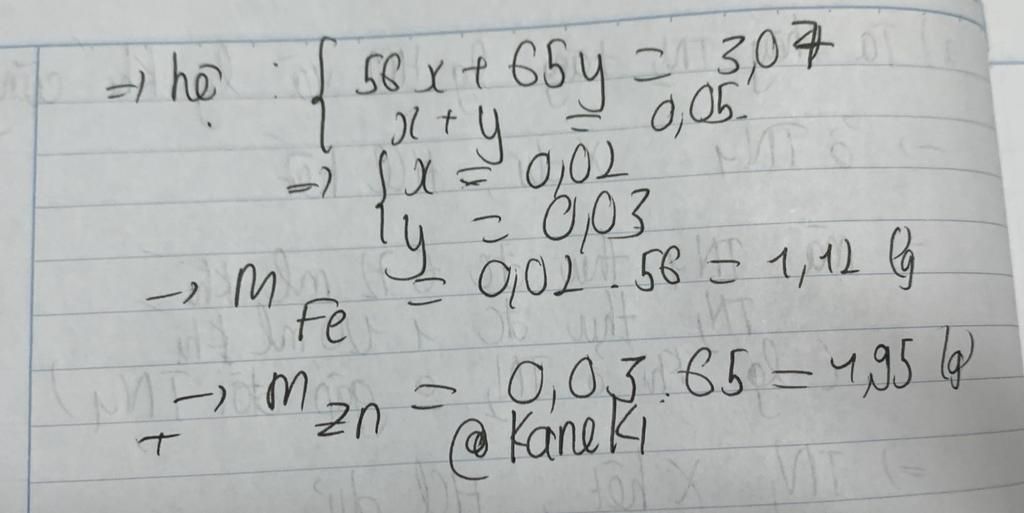 => hệ : { 56x + 65y = 3,07
x + y = 0,05
=> { x = 0,02
y = 0,03
-> m Fe = 0,02 . 56 = 1,12 (g
+ -> m Zn = 0,03 . 65 = 1,95 (g)
@Kaneki